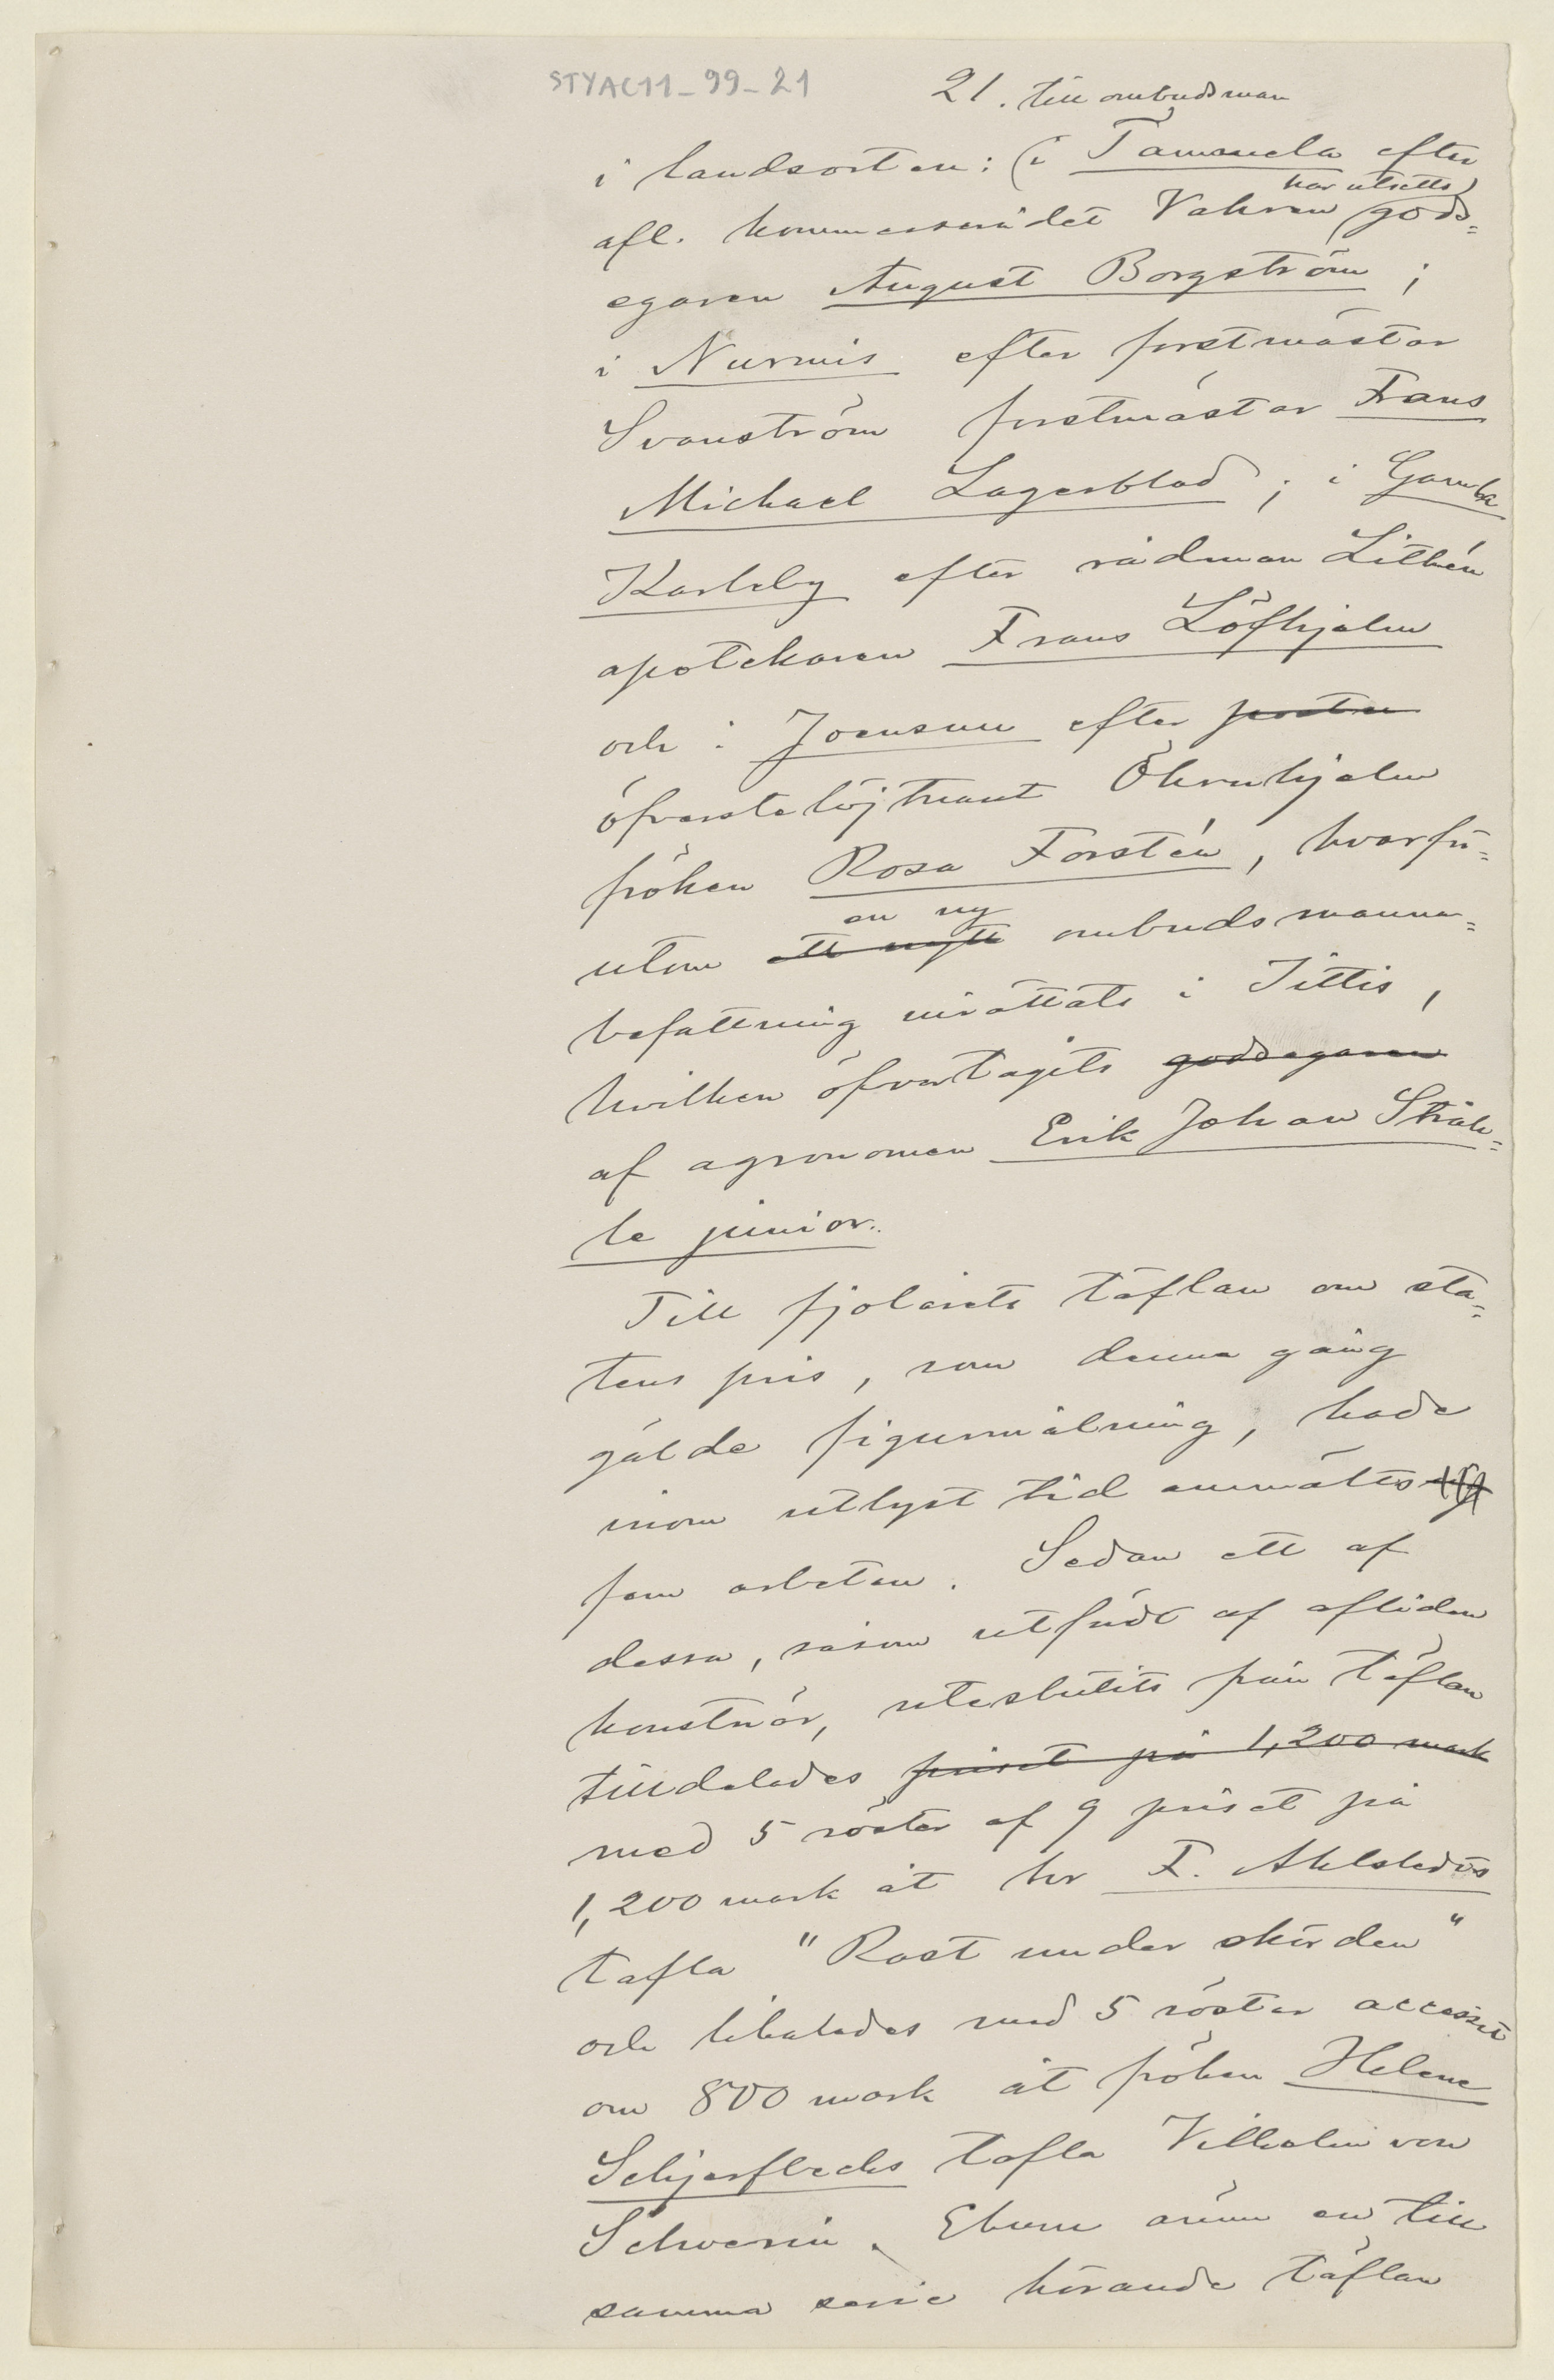 STYAC11_99_21
21. till ombudsman
i landsorten: (i Tammela efter
har utsetts)
afl. kommerserådet Vahren gods=
egaren August Borgström;
i Nurmis efter forstmästar
Svanström forstmästar Frans
Michael Lagerblad; i Gamla
Karleby efter rådman Lithén
apotekaren Frans Löfhjelm
och i Joensuu efter
öfverstelöjtnant Öhrnhjelm
fröken Rosa Forstén, hvarfö=
en ny
utom ett nytt ombudsmanna=
befattning inrättats i Jittis,
hvilken öfvertagits godsegaren
af agronomen Erik Johan Stråh=
le junior.
Till fjolårets täflan om sta=
tens pris, som denna gång
gälde figurmålning, hade
inom utlyst tid anmälts
fem arbeten. Sedan ett af
dessa, såsom utfördt af afliden
konstnär, uteslutits från täflan
tilldelades priset på 1,200 mark
med 5 röster af 9 priset på
1,200 mark åt hr F. Ahlstedts
tafla "Rast under skörden"
och tilldelades med 5 röster accessit
om 800 mark åt fröken Helene
Schjerfbecks tafla Vilhelm von
Schwerin. Ehuru ännu en till
samma serie hörande täflan